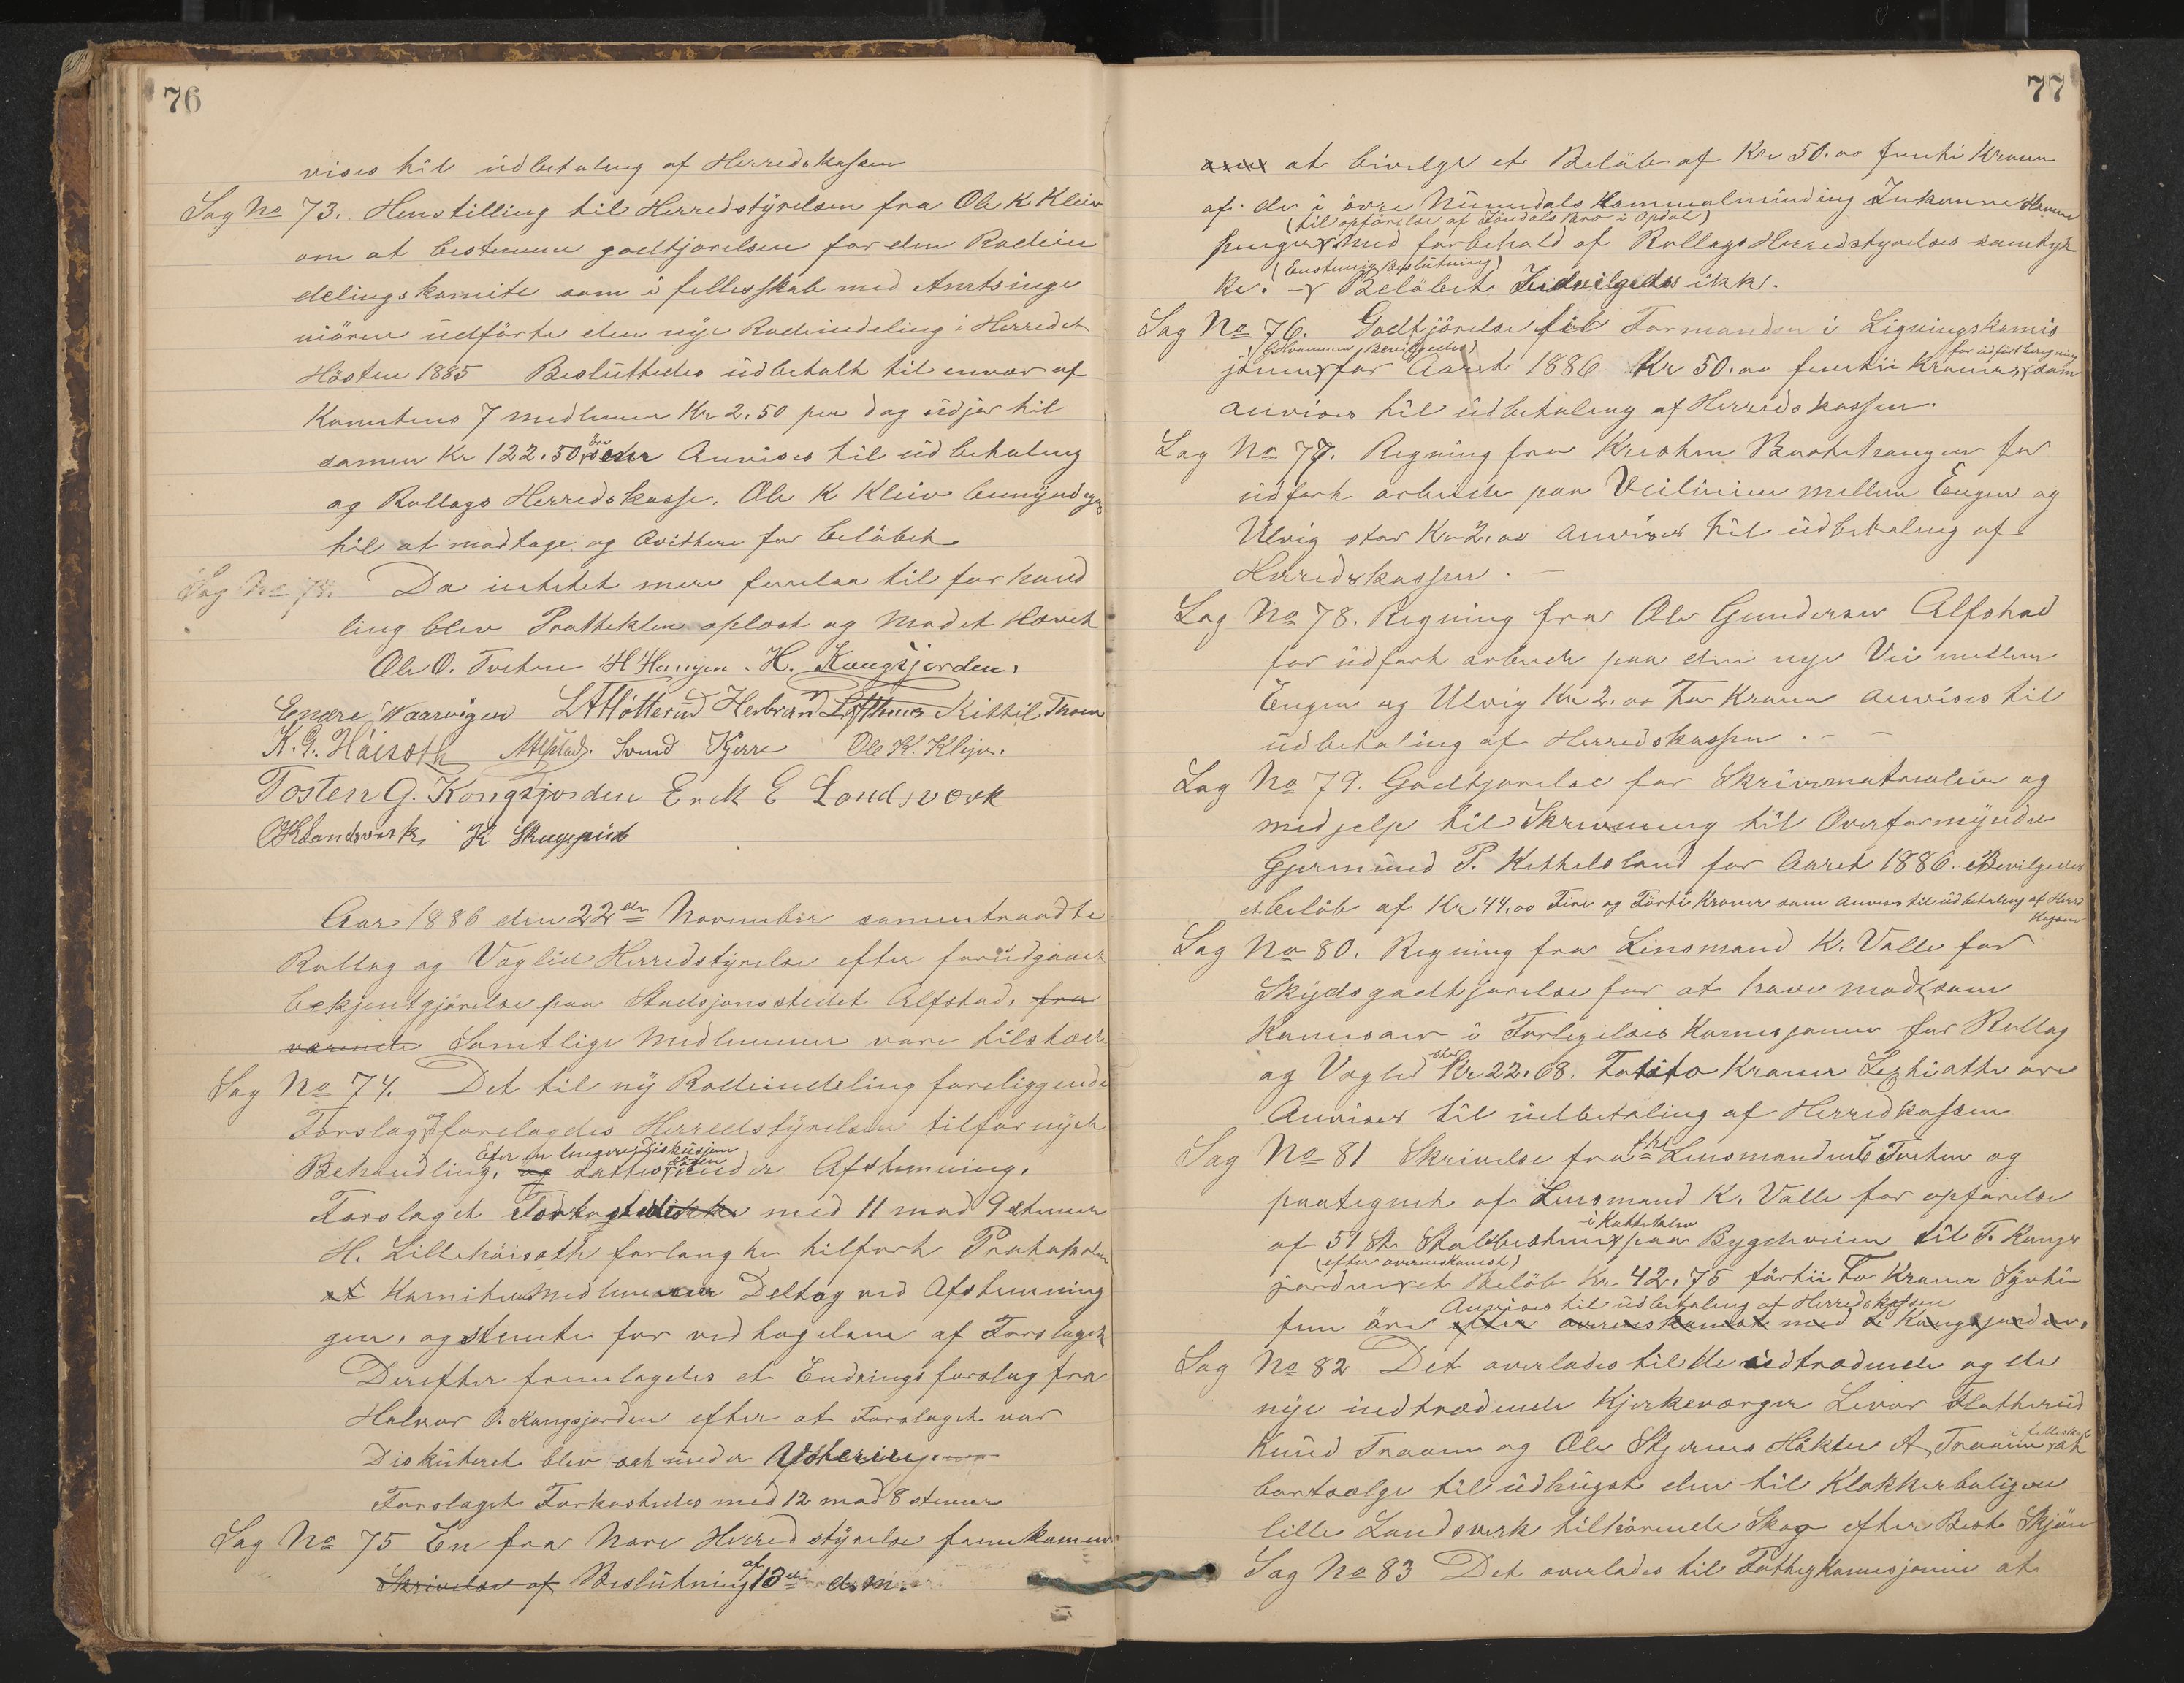 76
vises til üdbetaling af Herredskassen
Sag No 73. Henstilling til Herredstÿrelsen fra Ole K Kleiv
om at bestemme godtjörelsen for den Rodein
delingskomite som i fellesskab med Amtsinge
niören üdförte den nÿe Rodeindeling i Herredet
Hösten 1885 Beslüttedes üdbetalt til enver af
Komitens 7 medlemer Kr 2.50 per dag üdjör til
samen Kr 122.50 öre som Anvises til üdbetaling
og Rollags Herredskasse. Ole K Kleiv bemÿndiges
til at modtage og qvittere for belöbet.
Sag No 74. Da intetet mere forelaa til forhand
ling blev Prottekslen oplæst og Mødet Hævet
Ole O. Tveten H Haugen. H. Kongsjorden.
Endre Waarvigen Herbrand Lofthus Kittil Traen
K. G. Höisæth Alfstad. Svend Kjerre Ole K. Klejv.
Tosten G. Kongsjorden Erik E Landsværk
OHLandsværk K Skagerüd
Aar 1886 den 22de November sammentraadte
Rollag og Væglid Herredstÿrelse efter forüdgaaet
bekjentgjörelse paa Stadsjonsstedet Alfstad, fra
værende Samtlige Medlemmer vare tilstæde
Sag No 74. Det til nÿ Rodeindeling foreliggende
Forslag og forelagdes Herredstÿrelsen til fornÿet
Efter en lengere Diskusjon
Behandling. og sattes saden under Afstemning.
Forslaget Forkastedes ikke med 11 mod 9 stemer
H. Lillehöisæth forlangte tilført Protokolen
at Komitens Medlemmer Deltog ved Afstemning
gen, og stemte for vedtagelsen af Forslaget
Derefter fremlagdes et Endringsforslag fra
Halvor O. Kongsjorden efter at Forslaget var
Disküteret blev sat under Votering.
Forslaget Forkastedes med 12 mod 8 stemer
Sag No 75 En fra Nore Herredstÿrelse fremkommen
Skrivelse af Beslütning af 13de d.M.
77
at bivelge et Belöb af Kr 50.00 femti Kroner
af de i övre Nümedals Kommualmünding Inkomne
(til opförelse af Jöndals Bro i Opdal)
penger med forbehold af Rollags Herredstyrelses samtyk
(Enstemig Beslütning)
ke. Belöbet Indvilgedes ikke.
Sag No 76. Godtjörelse til Formanden i Ligningskomis
(G. Kvammen Bevilgedes) for üdfört beregning
jönen for Aaret 1886 Kr 50.00 femti Kroner, som
anvises til üdbetaling af Herredskassen.
Sag No 77. Regning fra Kristen Baaktehaugen for
üdført arbeide paa Veilinien mellem Engen og
Ulvig stor Kr 2.00 anvises til üdbetaling af
Herredskassen. —
Sag No 78. Regning fra Ole Gundersen Alfstad
for üdført arbeide paa den nye Vei mellem
Engen og Ulvig Kr 2.00 To Kroner anvises til
üdbetaling af Herredskassen. — —
Sag No 79. Godtjørelse for Skrivematrialier og
medjelp til Skrivning til Overformÿnder
Gjermünd P. Kettelsland for Aaret 1886. Bevilgedes
et belöb af Kr 44.00 Fire og Förti Kroner som anvises til üdbetaling af Herreds
Kassen
Sag No 80. Regning fra Linsmand K. Valle for
Skÿdsgodtjørelse for at have mødt som
Kommisær i Forligelses Komisjonen for Rollag
og Væglid stor Kr 22.68. To to Kroner Sextiotte øre
Anvises til üdbetaling af Herredkassen
Sag No 81 Skrivelse fra fhv Lensmand Tveten og
paategnet af Lensmand K. Valle for opførelse
i Kattetalen
af 51 St. Stabbestene paa Bygdeveien til T. Kongs
(efter overenskomst)
jorden et Belöb Kr 42.75 förtii To Kroner Sÿttii
Anvises til üdbetaling af Herredskassen
fem öre efter overenskomst med Kongsjorden.
Sag No 82 Det overlades til de üdtrædende og de
nÿe indtrædende Kjerkeværger Levor Flatherüd
Knüd Traaen og Ole Stjernes Häkten A. Traaen i felleskab at
bortsælge til üdhügst den til Klokkerboligen
lille Landsverk tilhörende Skog efter Best Skjön
Sag No 83 Det overlades til Fattigkomisjonen at